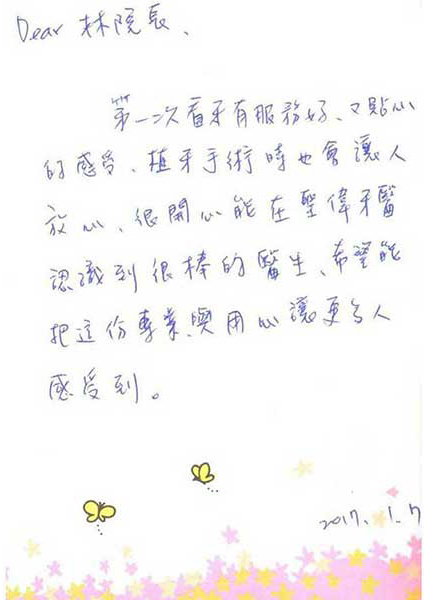 Dear 林院長、
第一次看牙有服務好、又貼心
的感受、植牙手術時也會讓人
放心、很開心能在聖偉牙醫
認識到很棒的醫生、希望能
把這份專業與用心讓更多人
感受到。
2017. 1. 7